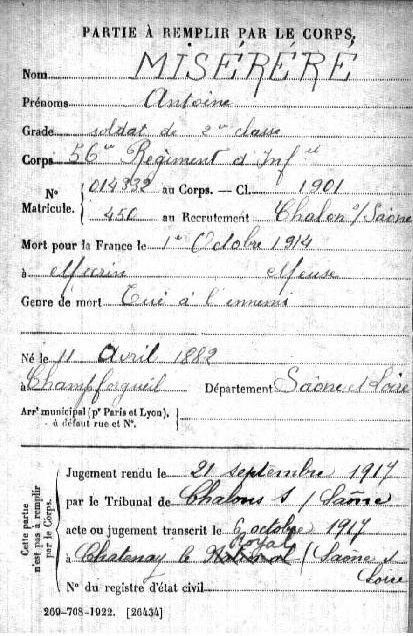 PARTIE À REMPLIR PAR LE CORPS.
Nom MISÉRÉRÉ
Prénoms Antoine
Grade soldat de 2e classe
Corps 56e Régiment d'Infie
N° Matricule. { 014332 au Corps. — Cl. 1901
450 au Recrutement Chalon s/Saône
Mort pour la France le 1er Octobre 1914
à Meuse
Genre de mort Tué à l'ennemi
Né le 11 Avril 1882
à Champforgueil Département Saône et Loire
Arrt municipal (pr Paris et Lyon), à défaut rue et N°.
Cette partie n'est pas à remplir par le Corps.
Jugement rendu le 21 septembre 1917
par le Tribunal de Chalons s/ Saône
acte ou jugement transcrit le 6 octobre 1917
à Chatenoy le Royal (Saône et Loire
N° du registre d'état civil
269-708-1922. [26434]